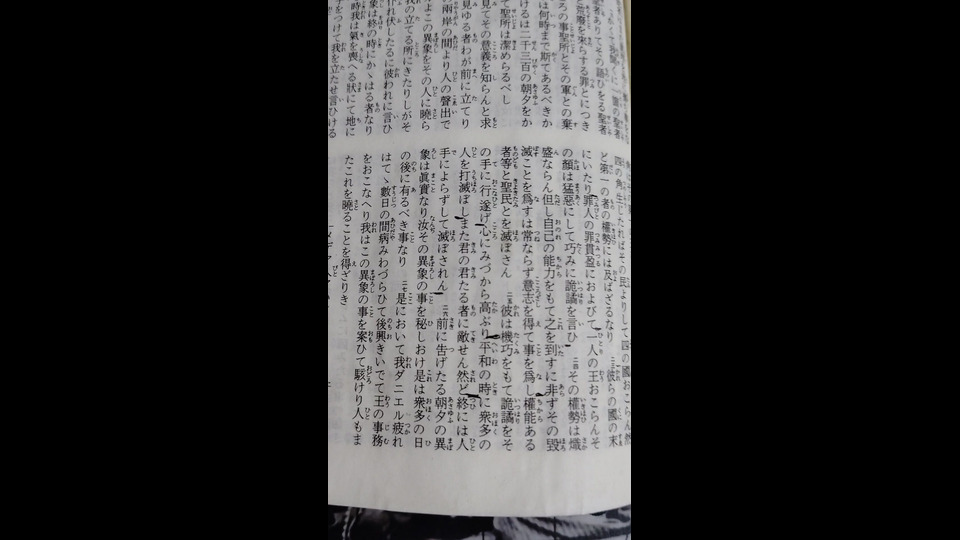 聖者ありてその語ひをる聖者
荒廢を來らする罪とにつき
ろの事聖所とその軍との棄
は何時まで斯てあるべきか
けるは二千三百の朝夕をか
て聖所は潔めらるべし
見てその意義を知らんと求
見ゆる者わが前に立てり
兩岸の間より人の聲出で
よこの異象をその人に曉ら
我の立てる所にきたりしがそ
仆れ伏したるに彼われに言ひ
象は終の時にかゝはる者なり
時我は氣を喪へる狀にて地に
をつけて我を立たせ言ひける
四の角生じたればその民よりして四の國おこらん然
ど第一の者の權勢には及ばざるなり 二三 彼らの國の末
にいたり罪人の罪貫盈におよびて一人の王おこらんそ
の顏は猛惡にして巧みに詭譎を言ひ 二四 その權勢は熾
盛ならん但し自己の能力をもて之を到すに非ずその毀
滅ことを爲すは常ならず意志を得て事を爲し權能ある
者等と聖民とを滅ぼさん 二五 彼は機巧をもて詭譎をそ
の手に行遂げ心にみづから高ぶり平和の時に衆多の
人を打滅ぼしまた君の君たる者に敵せん然ど終には人
手によらずして滅ぼされん 二六 前に告げたる朝夕の異
象は眞實なり汝その異象の事を秘しおけ是は衆多の日
の後に有るべき事なり 二七 是において我ダニエル疲れ
はてゝ數日の間病みわづらひて後興きいでて王の事務
をおこなへり我はこの異象の事を案ひて駭けり人もま
たこれを曉ることを得ざりき